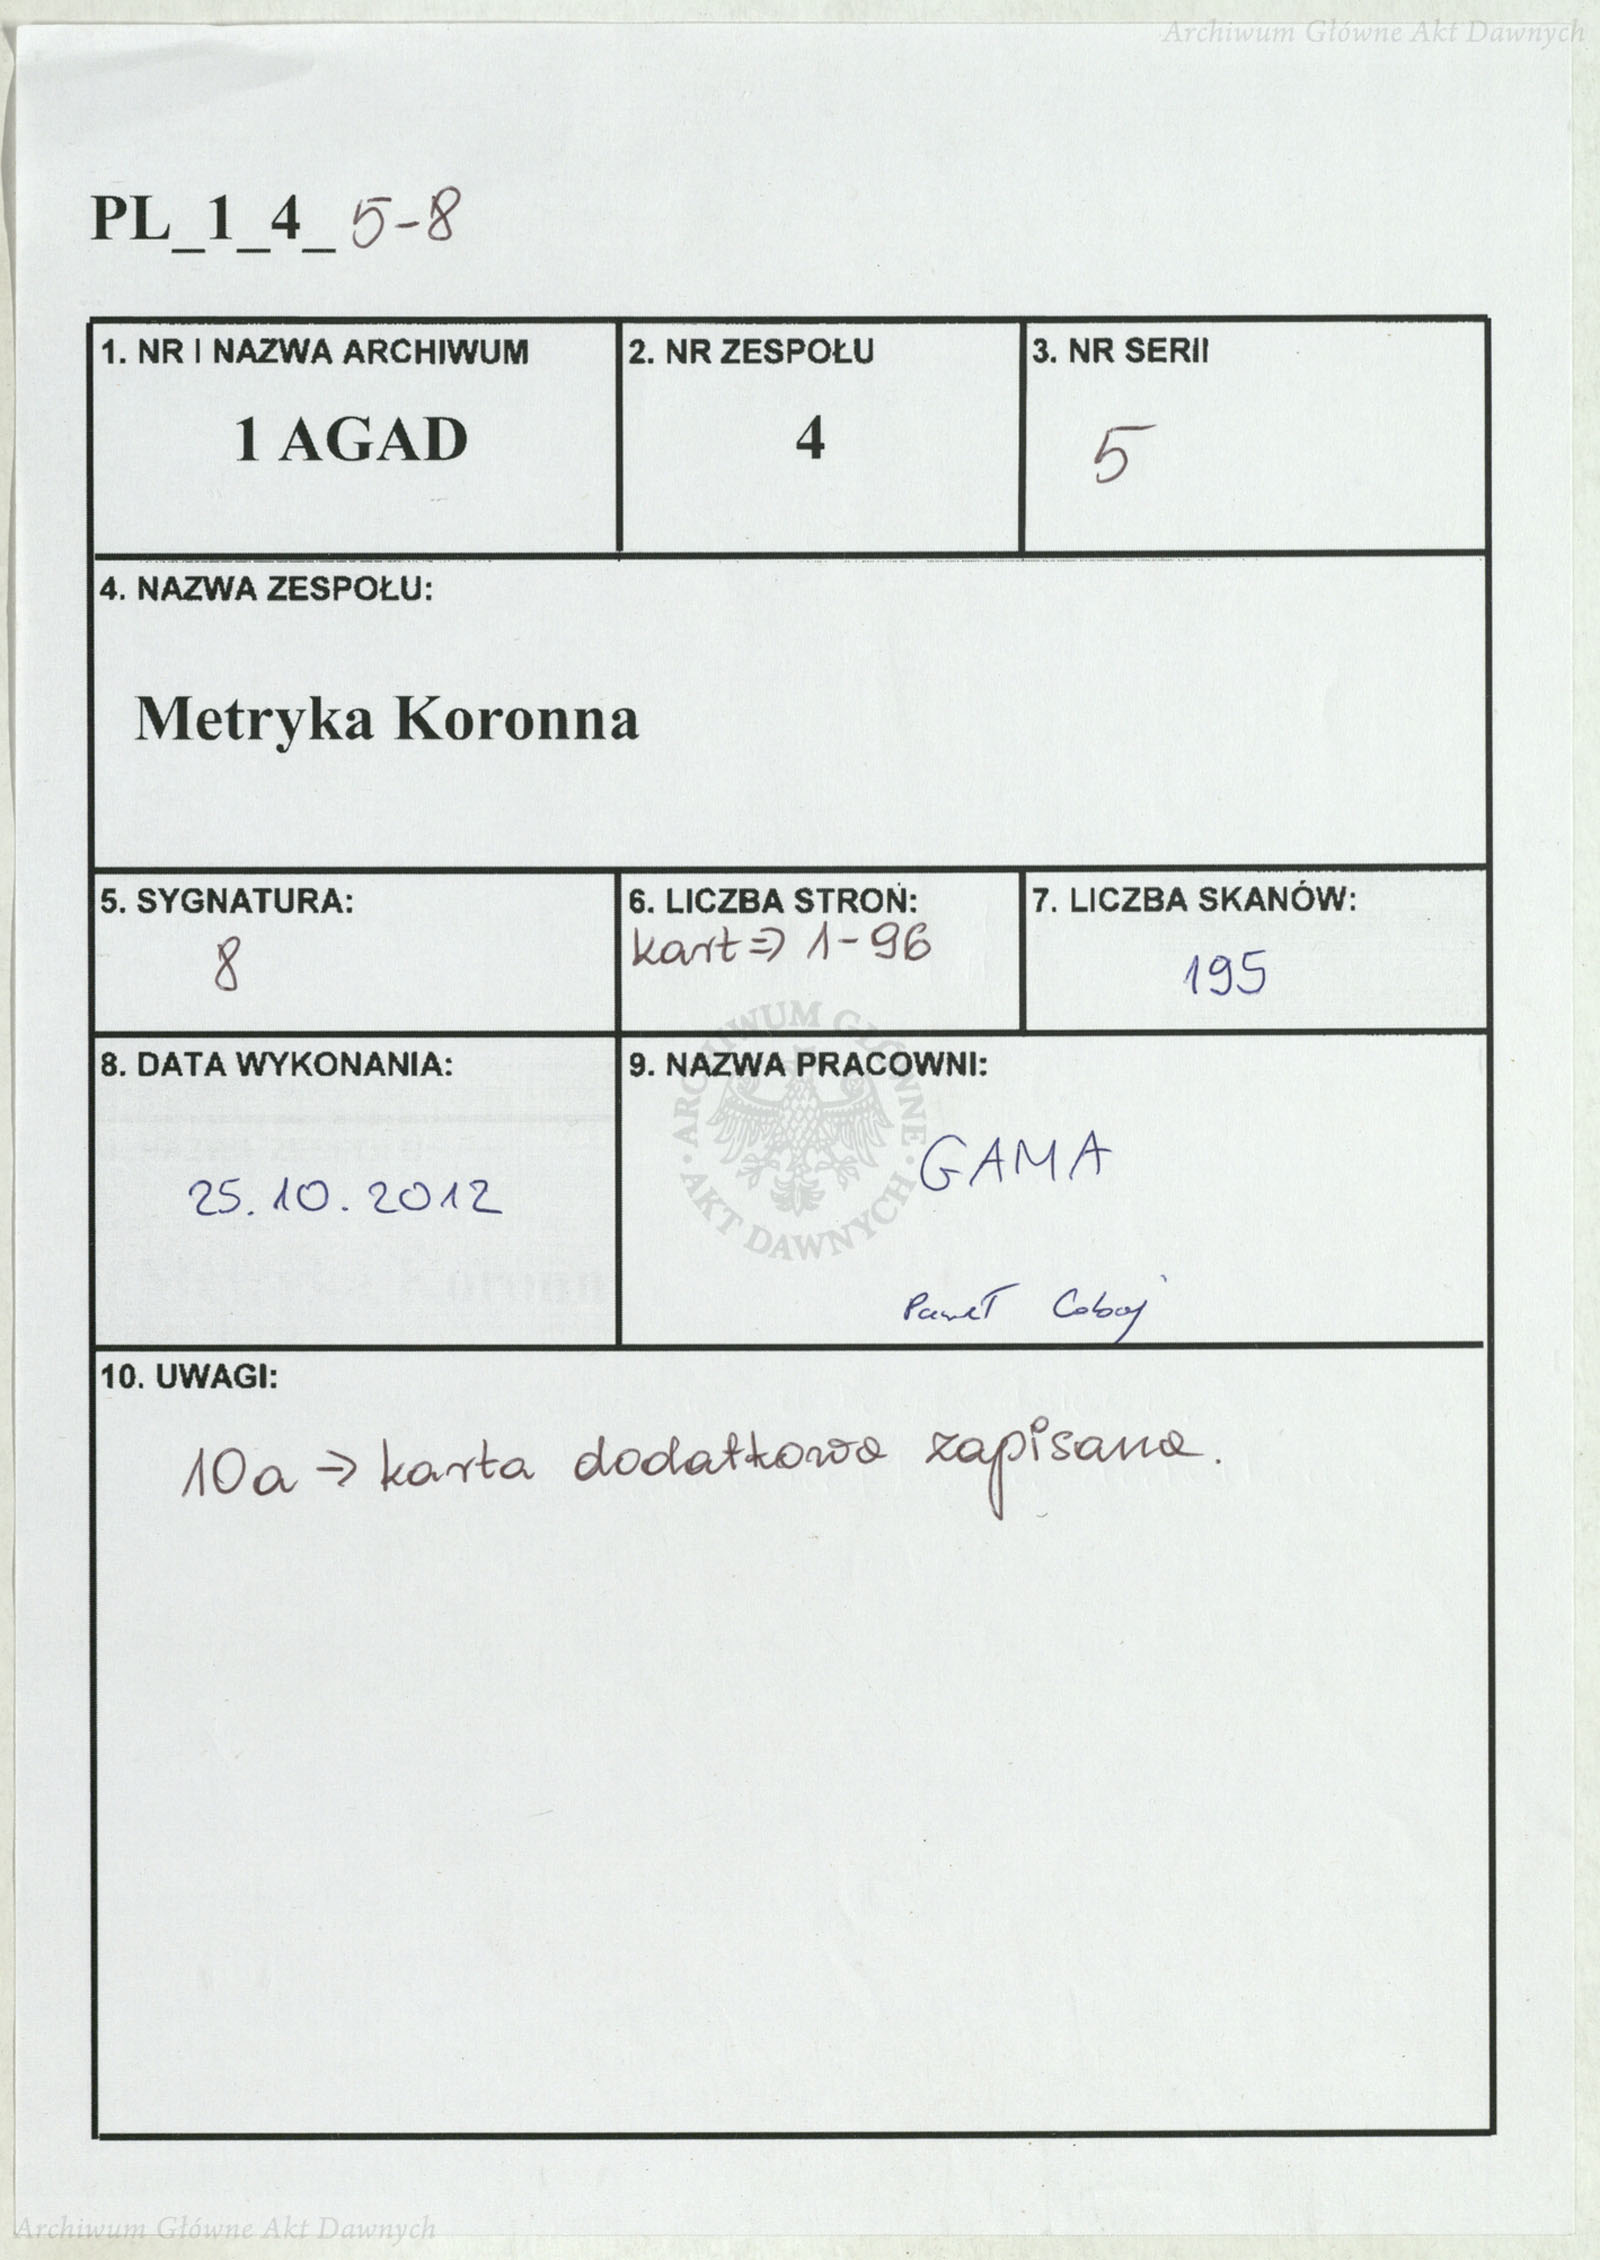 Archiwum Główne Akt Dawnych
PL_1_4_ 5-8
1. NR I NAZWA ARCHIWUM
1 AGAD
2. NR ZESPOŁU
4
3. NR SERII
5
4. NAZWA ZESPOŁU:
Metryka Koronna
5. SYGNATURA:
8
6. LICZBA STRON:
kart => 1-96
7. LICZBA SKANÓW:
195
8. DATA WYKONANIA:
25.10.2012
9. NAZWA PRACOWNI:
ARCHIWUM GŁÓWNE · AKT DAWNYCH ·
GAMA
Paweł
10. UWAGI:
10a -> karta dodatkowo zapisana.
Archiwum Główne Akt Dawnych